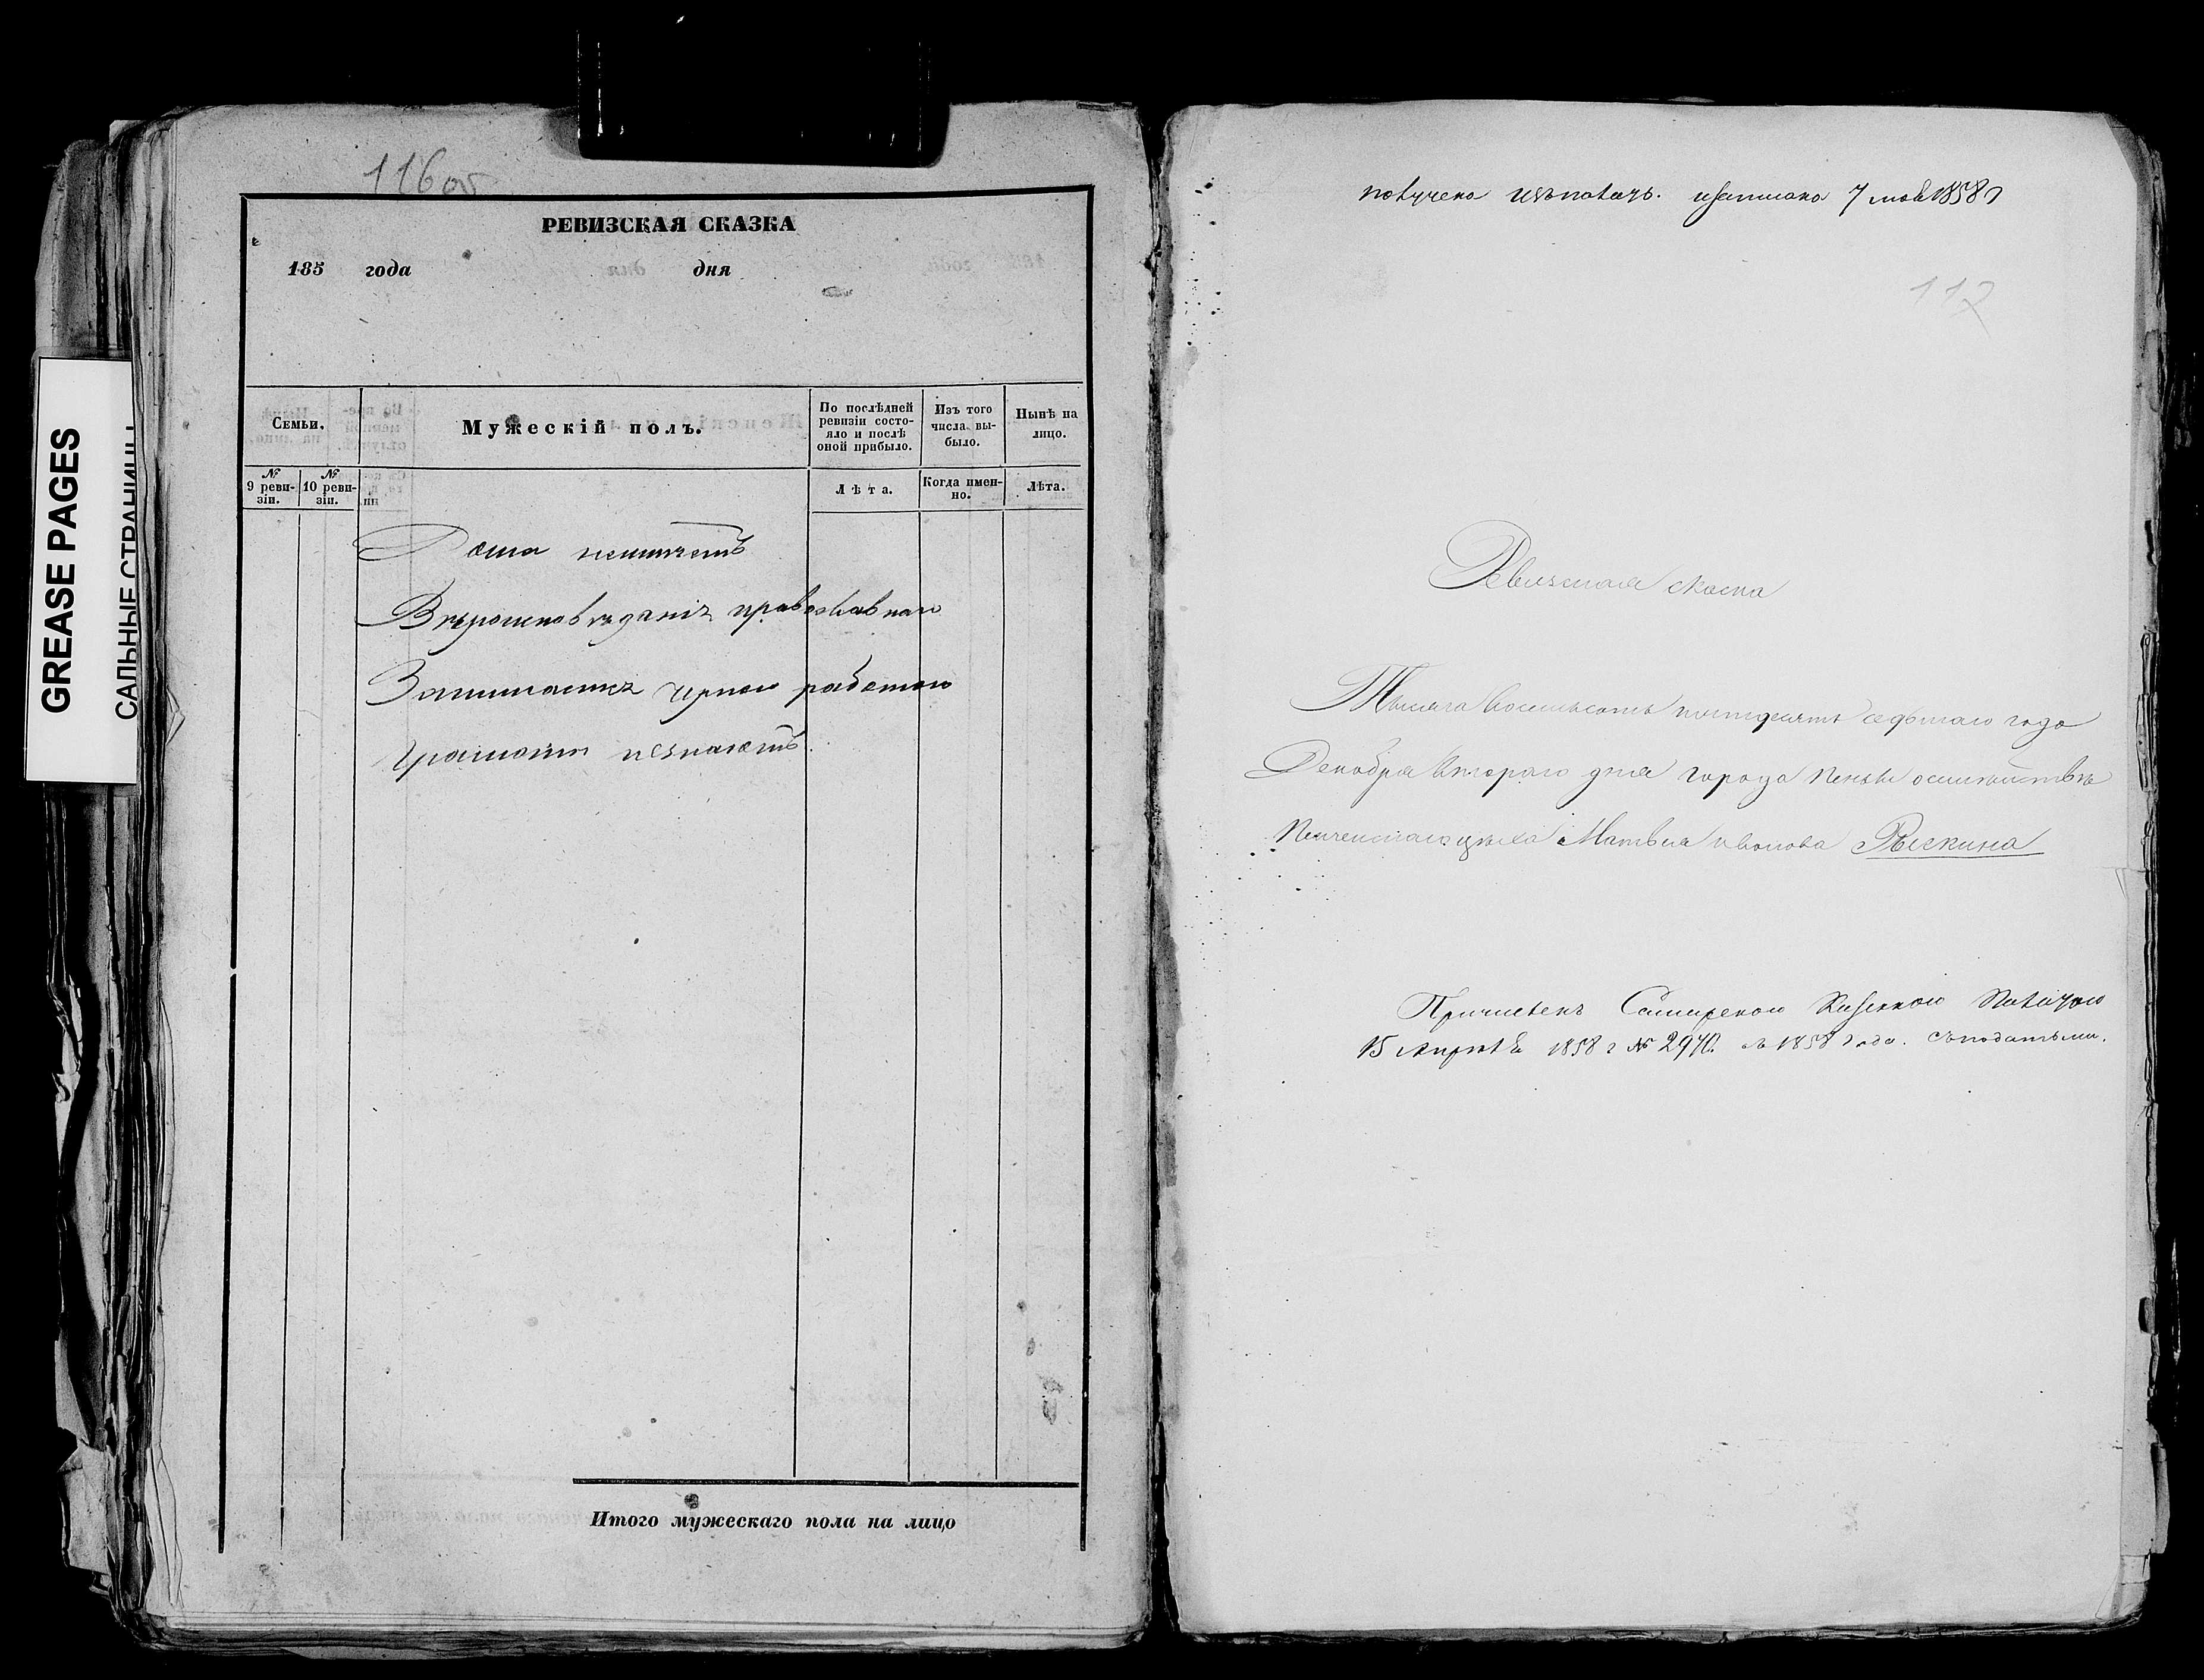 GREASE PAGES
САЛЬНЫЕ СТРАНИЦЫ
116об
РЕВИЗСКАЯ СКАЗКА
185 года дня
Семьи.
Мужескій полъ.
По послѣдней ревизіи состо-
яло и послѣ
оной прибыло.
Изъ того
числа вы-
было.
Нынѣ на
лицо.
№ 9 реви-
зіи.
№ 10 реви-
зіи.
Лѣта.
Когда имен-
но.
Лѣта.
Дома неимѣетъ
Вѣроисповѣданія православнаго
Занимается черною работою
Грамоты незнаетъ.
Итого мужескаго пола на лицо
получена изъ палаты. и записана 7 мая 1858 г
117
Ревизская скаска
Тысяча восемьсотъ пятдесятъ седьмаго года
Декабря втораго дня города Пензы о семействѣ
цѣха Матвея Иванова
Причисленъ Казенною Палатою
15 Апрѣля 1858 г № 2970. съ 1858 года. съ податьми.